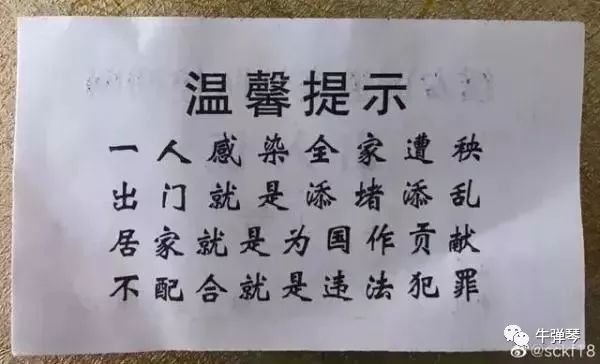 温馨提示
一人感染全家遭秧
出门就是添堵添乱
居家就是为国作贡献
不配合就是违法犯罪
牛弹琴
@sckf18